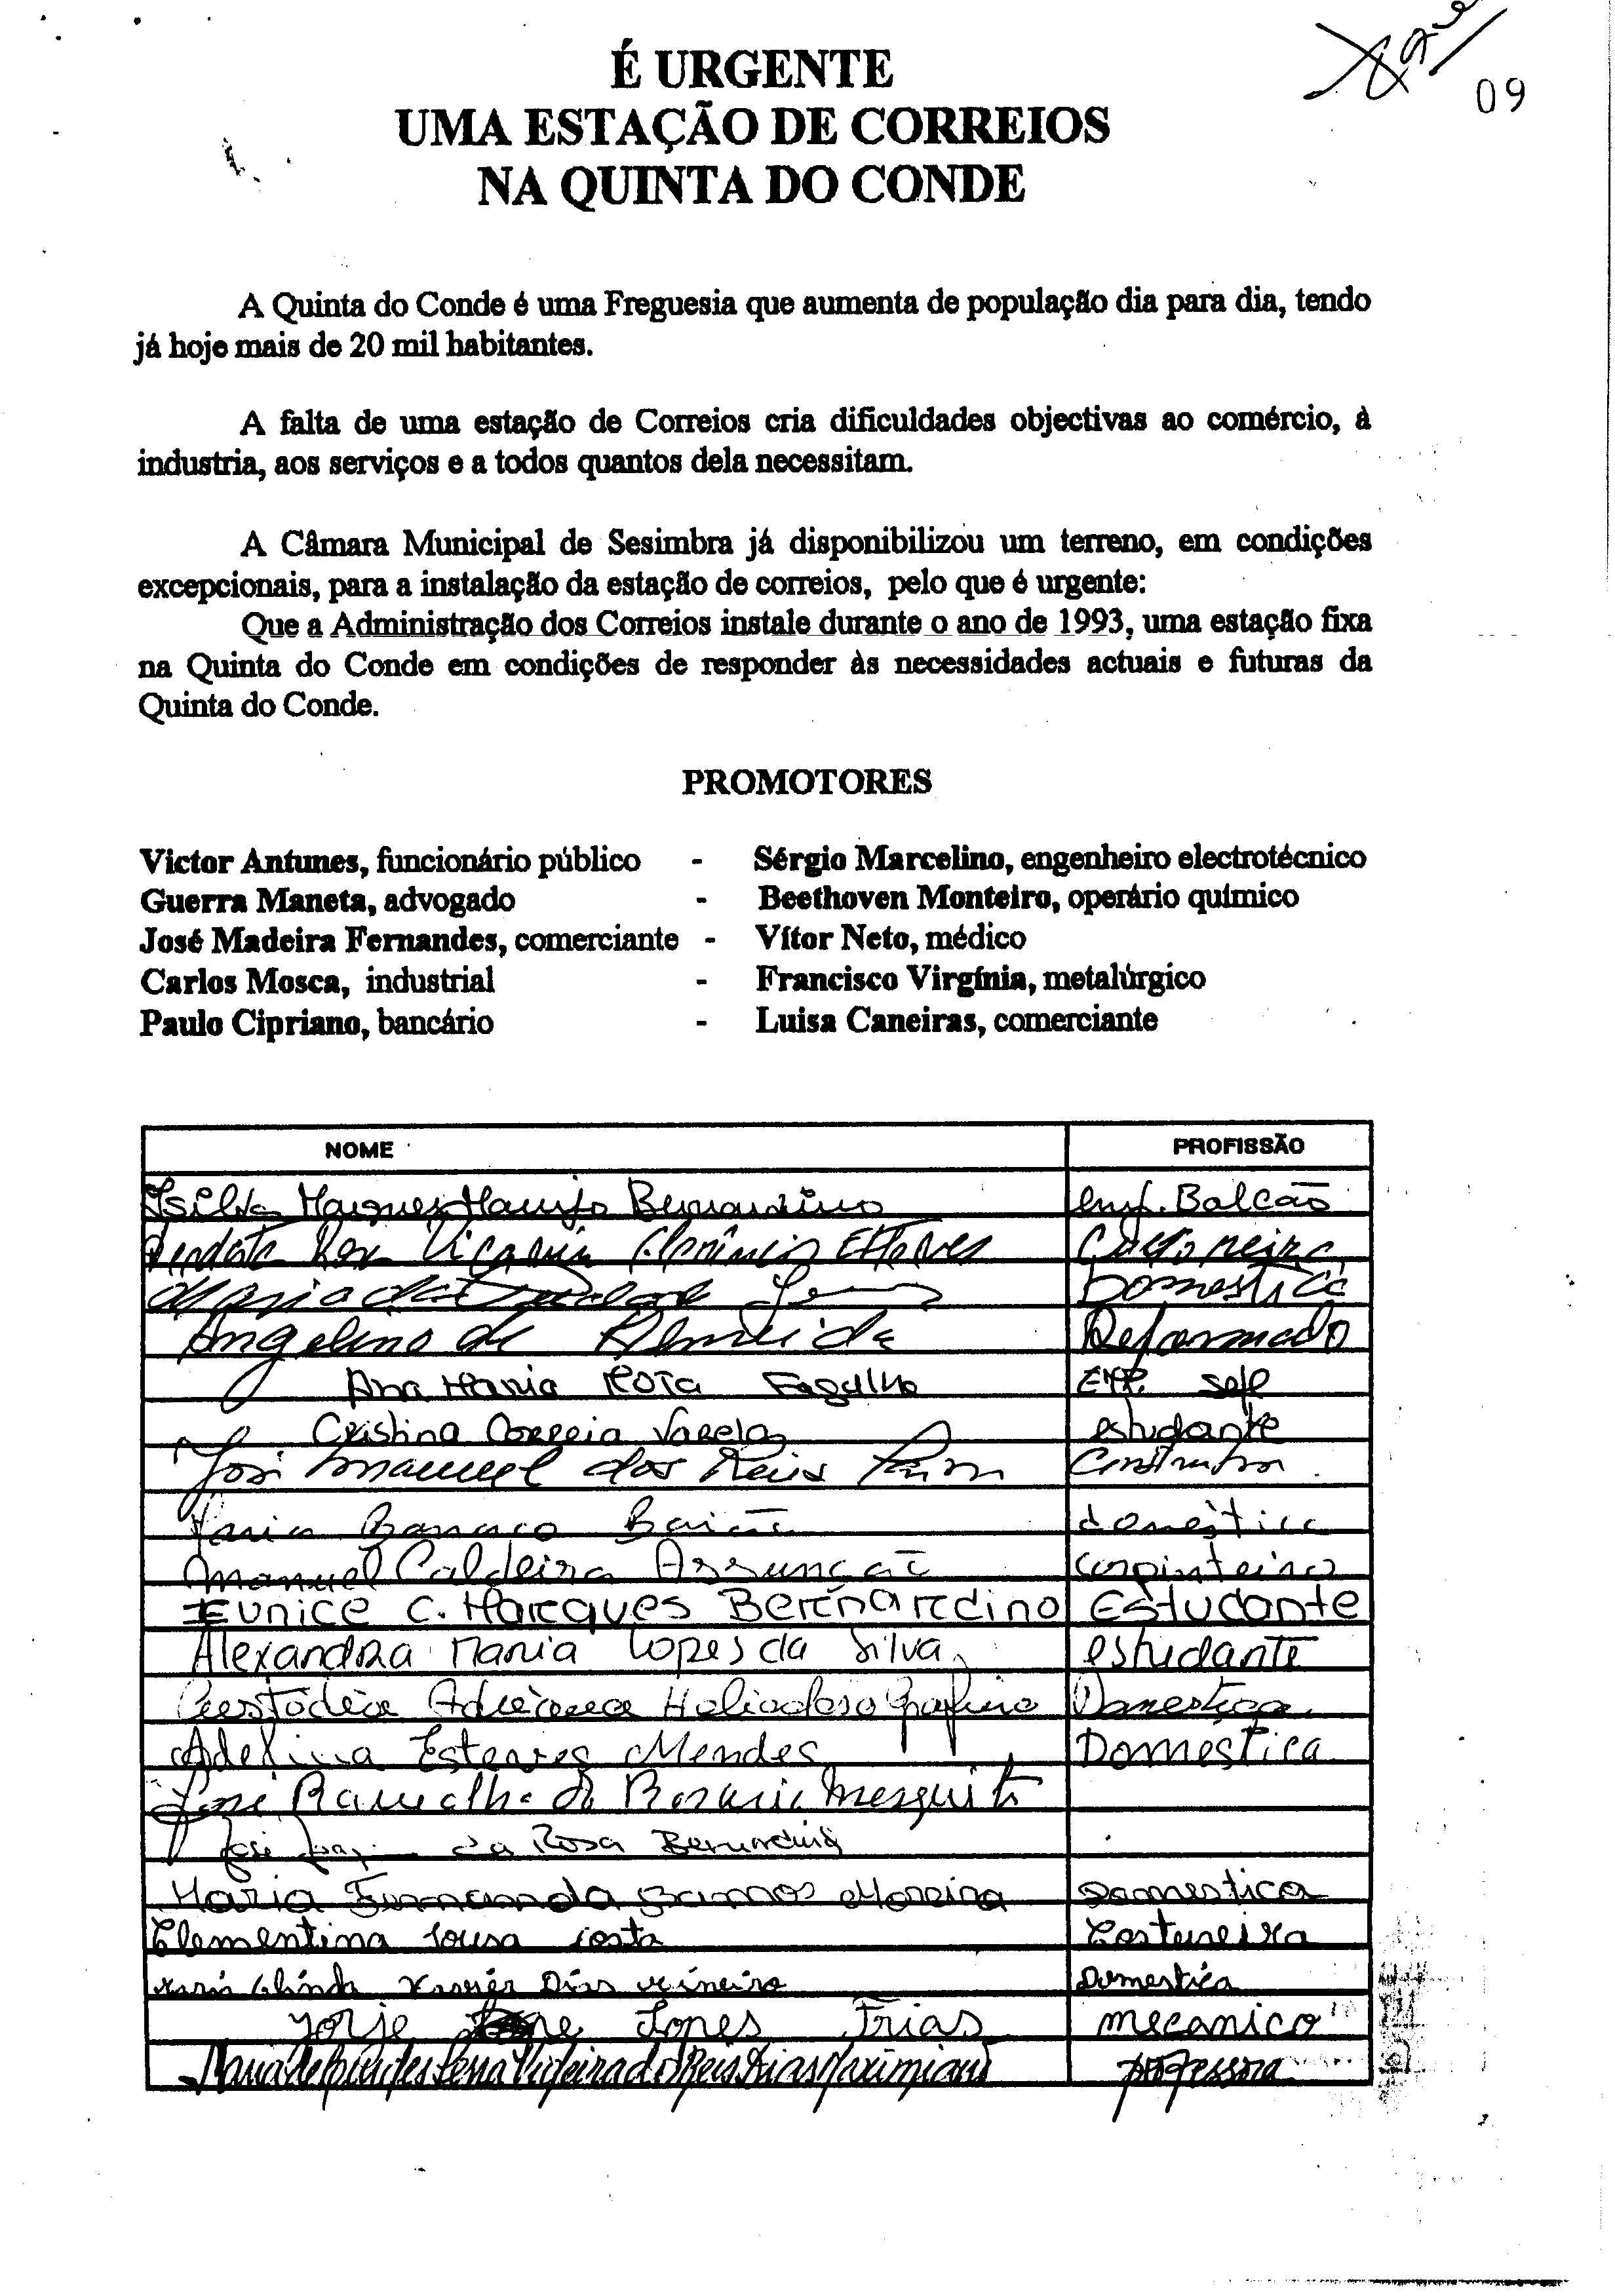 09
É URGENTE
UMA ESTAÇÃO DE CORREIOS
NA QUINTA DO CONDE
A Quinta do Conde é uma Freguesia que aumenta de população dia para dia, tendo
já hoje mais de 20 mil habitantes.
A falta de uma estação de Correios cria dificuldades objectivas ao comércio, à
industria, aos serviços e a todos quantos dela necessitam.
A Câmara Municipal de Sesimbra já disponibilizou um terreno, em condições
excepcionais, para a instalação da estação de correios, pelo que é urgente:
Que a Administração dos Correios instale durante o ano de 1993, uma estação fixa
na Quinta do Conde em condições de responder às necessidades actuais e futuras da
Quinta do Conde.
PROMOTORES
Victor Antunes, funcionário público - Sérgio Marcelino, engenheiro electrotécnico
Guerra Maneta, advogado - Beethoven Monteiro, operário químico
José Madeira Fernandes, comerciante - Vítor Neto, médico
Carlos Mosca, industrial - Francisco Virgínia, metalúrgico
Paulo Cipriano, bancário - Luisa Caneiras, comerciante
NOME PROFISSÃO
Marques Bernardino Emp. Balcão
Esteves
Maria da Domestica
Angelino de Almeida Reformado
Ana Maria Rosa
Cristina Correia Varela estudante
José Manuel dos Reis Construtor
Maria domestica
Manuel Caldeira Assunção carpinteiro
Eunice C. Marques Bernardino Estudante
Alexandra Maria Lopes da Silva estudante
Custódia Adriana Heliodoro Domestica
Adelina Esteves Mendes Domestica
José Ramalho do Rosario Mesquita
José da Rosa Bernardino
Maria Fernanda Ramos Moreira Domestica
Clementina Sousa Costa Costureira
Maria Xavier Dias Domestica
Jorje Lopes Frias mecanico
Maria de Reis Dias professora